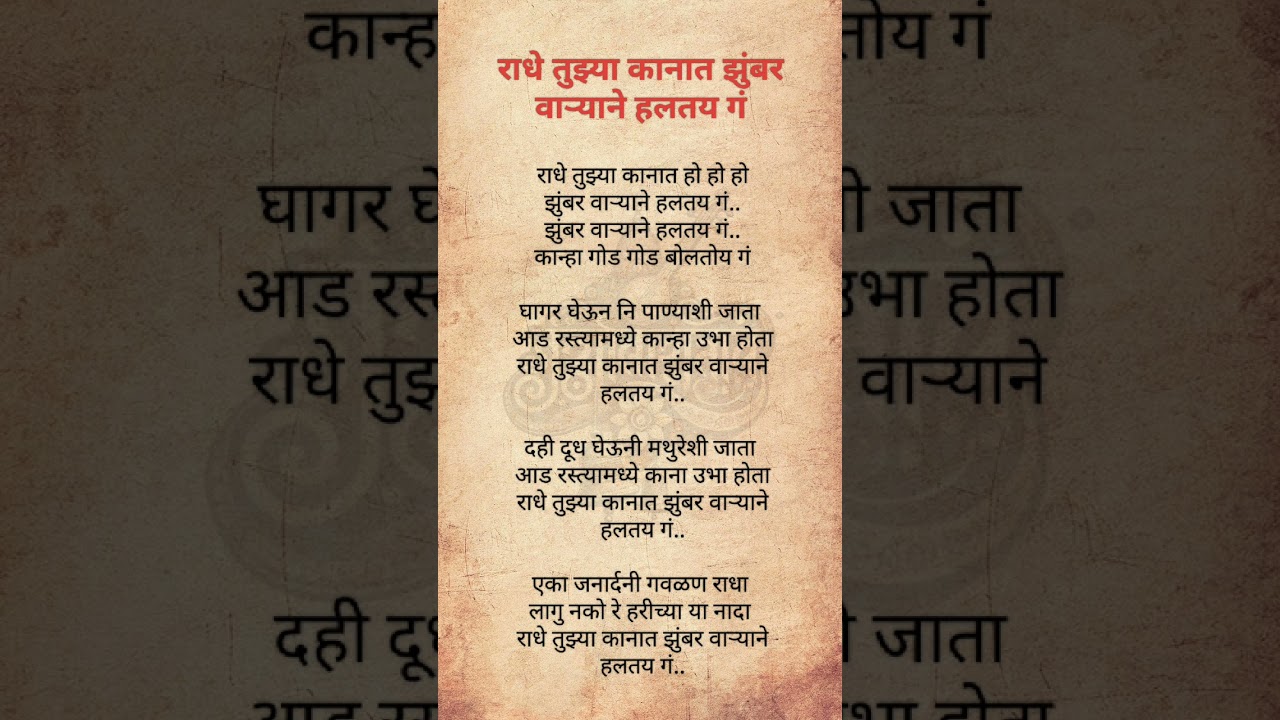 राधे तुझ्या कानात झुंबर
वाऱ्याने हलतय गं
राधे तुझ्या कानात हो हो हो
झुंबर वाऱ्याने हलतय गं..
झुंबर वाऱ्याने हलतय गं..
कान्हा गोड गोड बोलतोय गं
घागर घेऊन नि पाण्याशी जाता
आड रस्त्यामध्ये कान्हा उभा होता
राधे तुझ्या कानात झुंबर वाऱ्याने
हलतय गं..
दही दूध घेऊनी मथुरेशी जाता
आड रस्त्यामध्ये काना उभा होता
राधे तुझ्या कानात झुंबर वाऱ्याने
हलतय गं..
एका जनार्दनी गवळण राधा
लागु नको रे हरीच्या या नादा
राधे तुझ्या कानात झुंबर वाऱ्याने
हलतय गं..